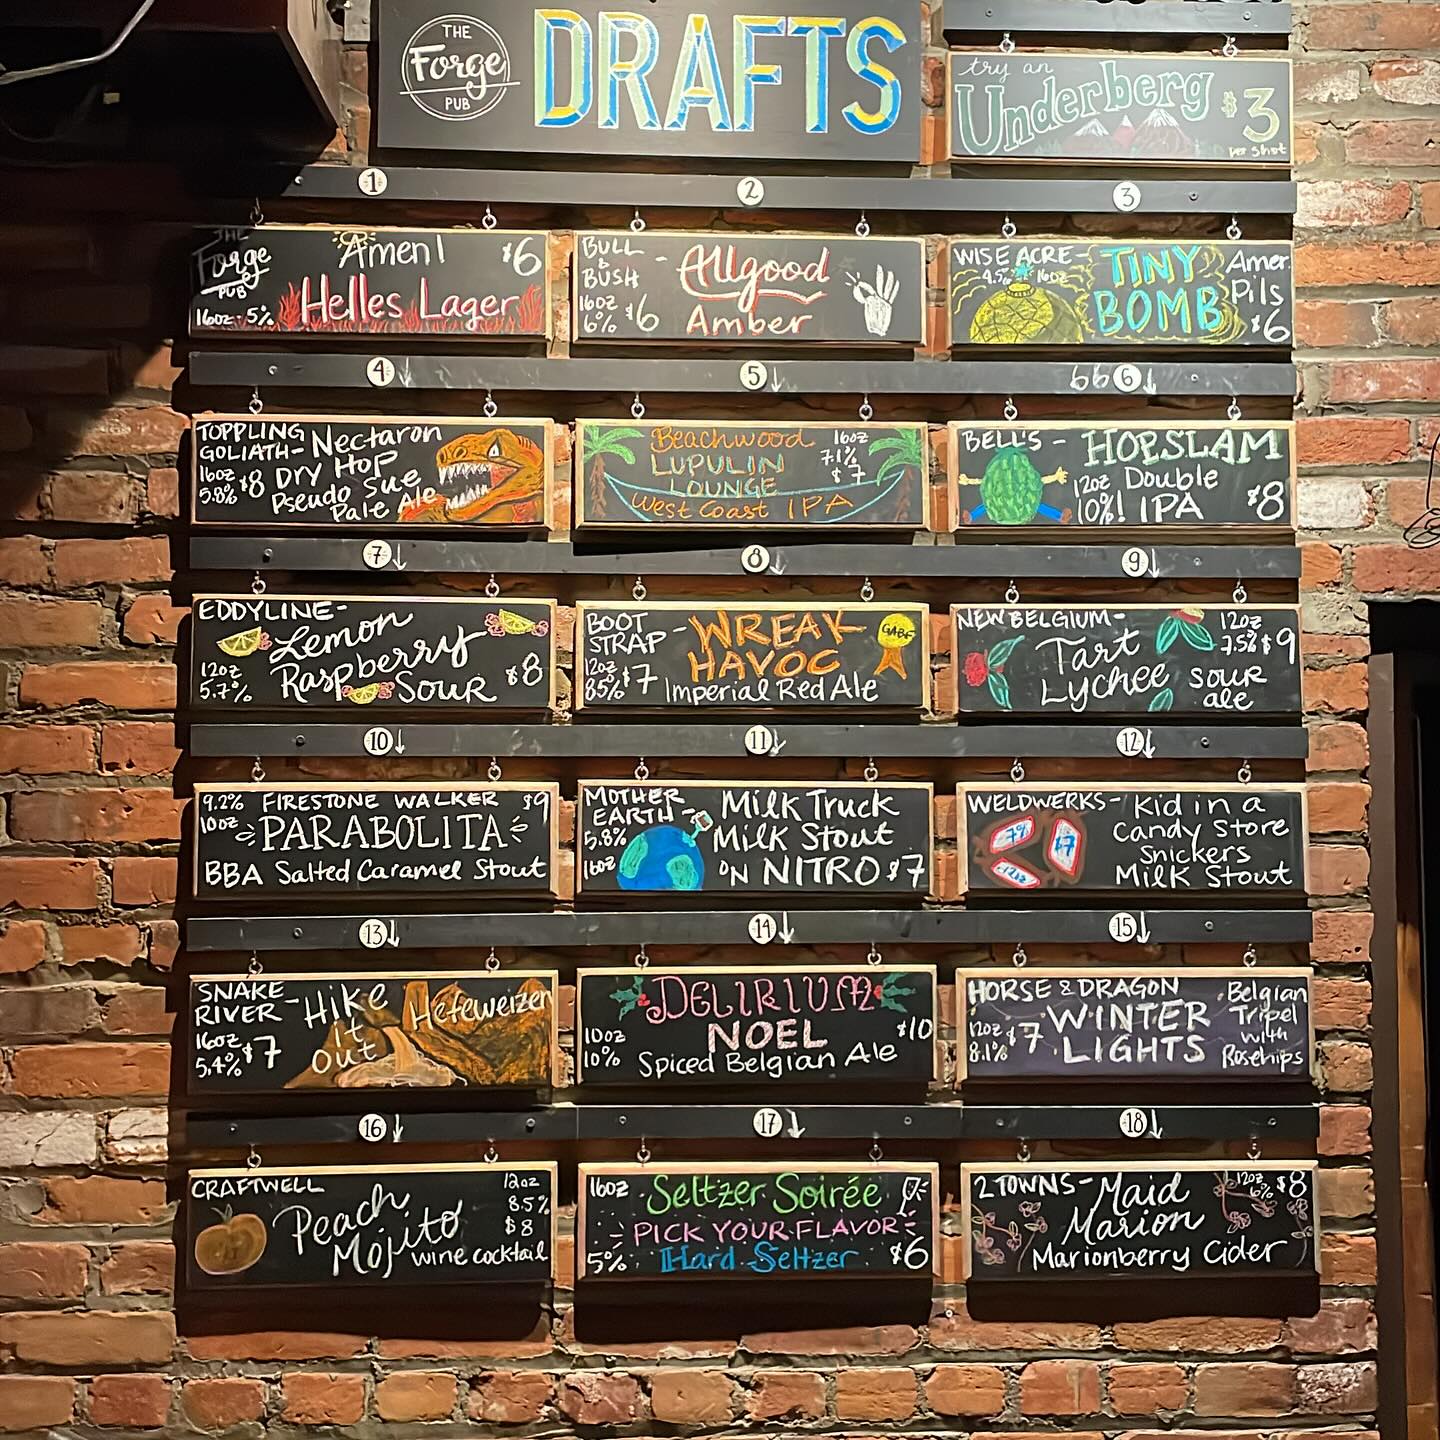 THE
Forge
PUB
DRAFTS
try an
Underberg $3
per shot
1
2
3
THE
Forge
PUB
16oz 5%
Amen!
Helles Lager
$6
BULL
&
BUSH -
16oz
6% $6
Allgood
Amber
WISE ACRE -
4.5% 16oz
TINY
BOMB
Amer.
Pils
$6
4
5
66 6
TOPPLING
GOLIATH - Nectaron
16oz
5.8% $8
DRY HOP
Pseudo Sue
Pale Ale
Beachwood
LUPULIN
LOUNGE
West Coast IPA
16oz
7.1%
$7
BELL'S - HOPSLAM
12oz Double
10%! IPA
$8
7
8
9
EDDYLINE -
Lemon
Raspberry
Sour
12oz
5.7%
$8
BOOT
STRAP -
12oz
8.5% $7
WREAK
HAVOC
Imperial Red Ale
GABF
NEW BELGIUM -
Tart
Lychee
sour
ale
12oz
7.5% $9
10
11
12
9.2% FIRESTONE WALKER $9
10oz PARABOLITA
BBA Salted Caramel Stout
MOTHER
EARTH -
5.8%
16oz
Milk Truck
Milk Stout
ON NITRO $7
WELDWERKS - Kid in a
Candy Store
Snickers
Milk Stout
7%
$7
12oz
13
14
15
SNAKE
RIVER -
16oz
5.4% $7
Hike
it
out
Hefeweizen
DELIRIUM
NOEL
Spiced Belgian Ale
10oz
10%
$10
HORSE & DRAGON
12oz
8.1% $7
WINTER
LIGHTS
Belgian
Tripel
with
Rosehips
16
17
18
CRAFTWELL
Peach
Mojito
wine cocktail
12oz
8.5%
$8
16oz Seltzer Soirée
PICK YOUR FLAVOR
5% Hard Seltzer $6
2 TOWNS - Maid
Marion
Marionberry Cider
12oz
6% $8